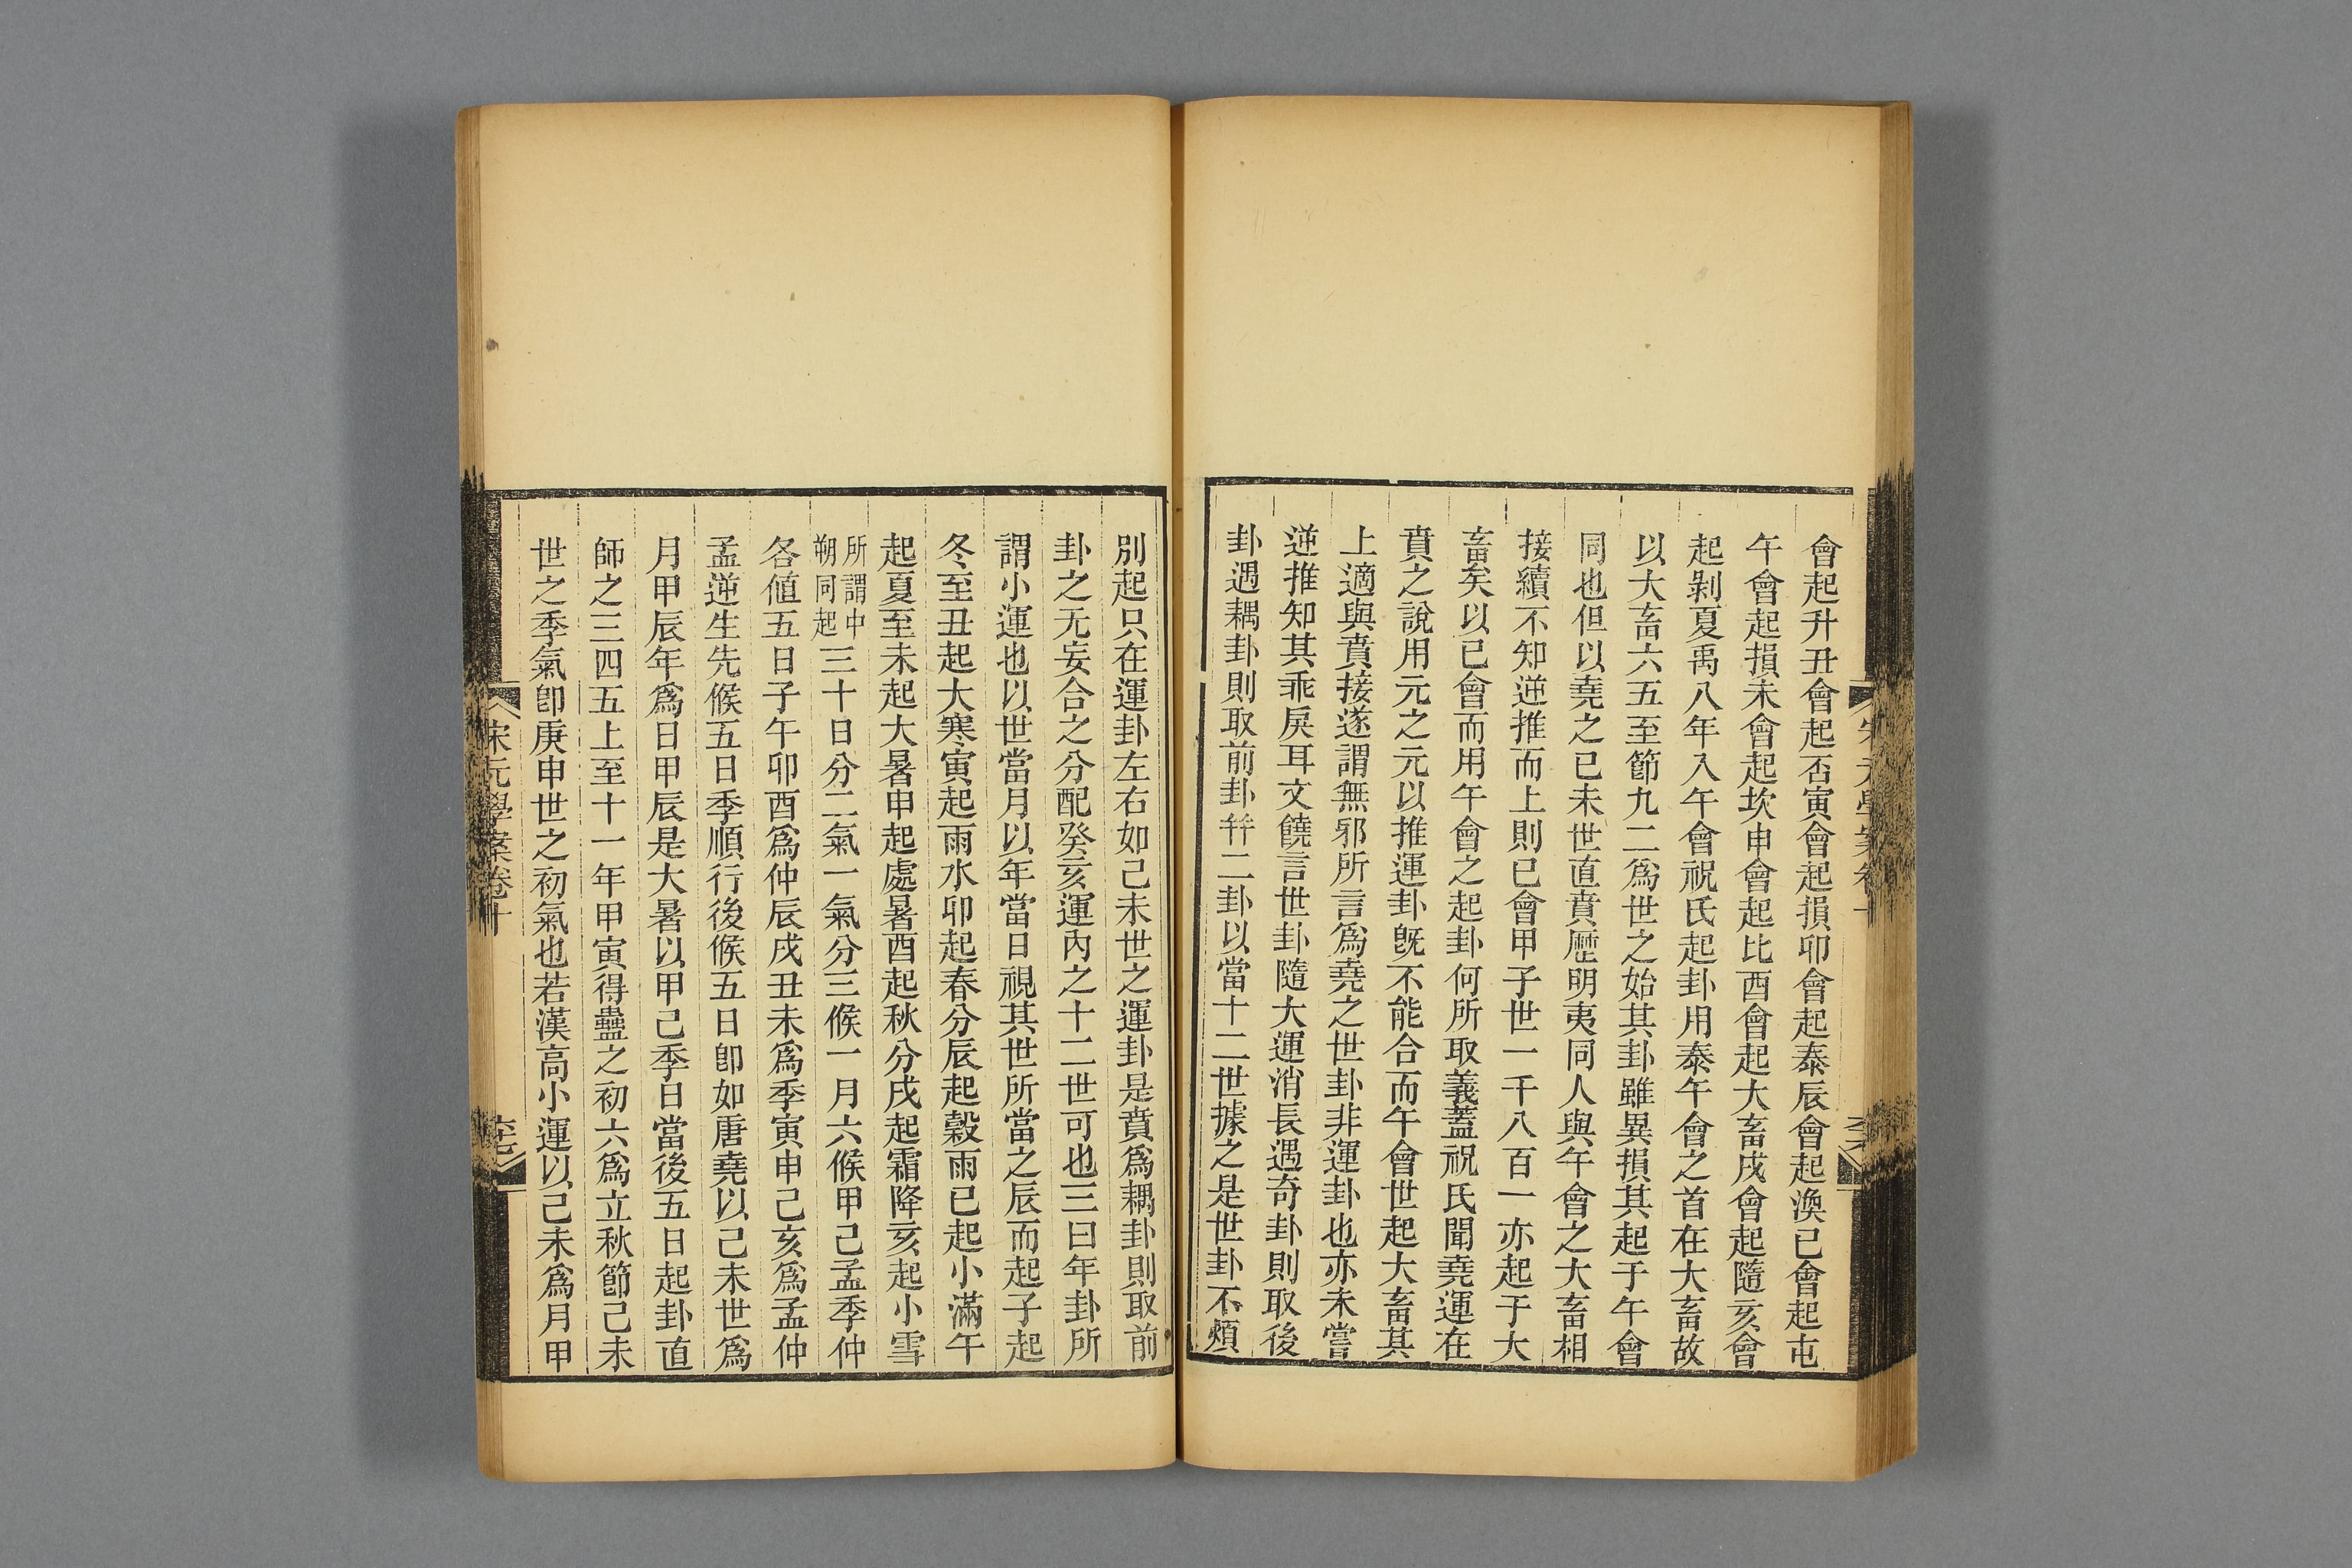 會起升丑會起否寅會起損卯會起泰辰會起渙已會起屯
午會起損未會起坎申會起比酉會起大畜戌會起隨亥會
起剝夏禹八年入午會祝氏起卦用泰午會之首在大畜故
以大畜六五至節九二爲世之始其卦雖異損其起于午會
同也但以堯之已未世直賁歷明夷同人與午會之大畜相
接續不知逆推而上則已會甲子世一千八百一亦起于大
畜矣以已會而用午會之起卦何所取義蓋祝氏聞堯運在
賁之說用元之元以推運卦旣不能合而午會世起大畜其
上適與賁接遂謂無邪所言爲堯之世卦非運卦也亦未嘗
逆推知其乖戾耳文饒言世卦隨大運消長遇奇卦則取後
卦遇耦卦則取前卦幷二卦以當十二世據之是世卦不煩
別起只在運卦左右如己未世之運卦是賁爲耦卦則取前
卦之无妄合之分配癸亥運內之十二世可也三曰年卦所
謂小運也以世當月以年當日視其世所當之辰而起子起
冬至丑起大寒寅起雨水卯起春分辰起穀雨已起小滿午
起夏至未起大暑申起處暑酉起秋分戌起霜降亥起小雪
所謂中朔同起三十日分二氣一氣分三候一月六候甲己孟季仲
各値五日子午卯酉爲仲辰戌丑未爲季寅申己亥爲孟仲
孟逆生先候五日季順行後候五日卽如唐堯以己未世爲
月甲辰年爲日甲辰是大暑以甲己季日當後五日起卦直
師之三四五上至十一年甲寅得蠱之初六爲立秋節己未
世之季氣卽庚申世之初氣也若漢高小運以己未爲月甲
宋元學案卷十